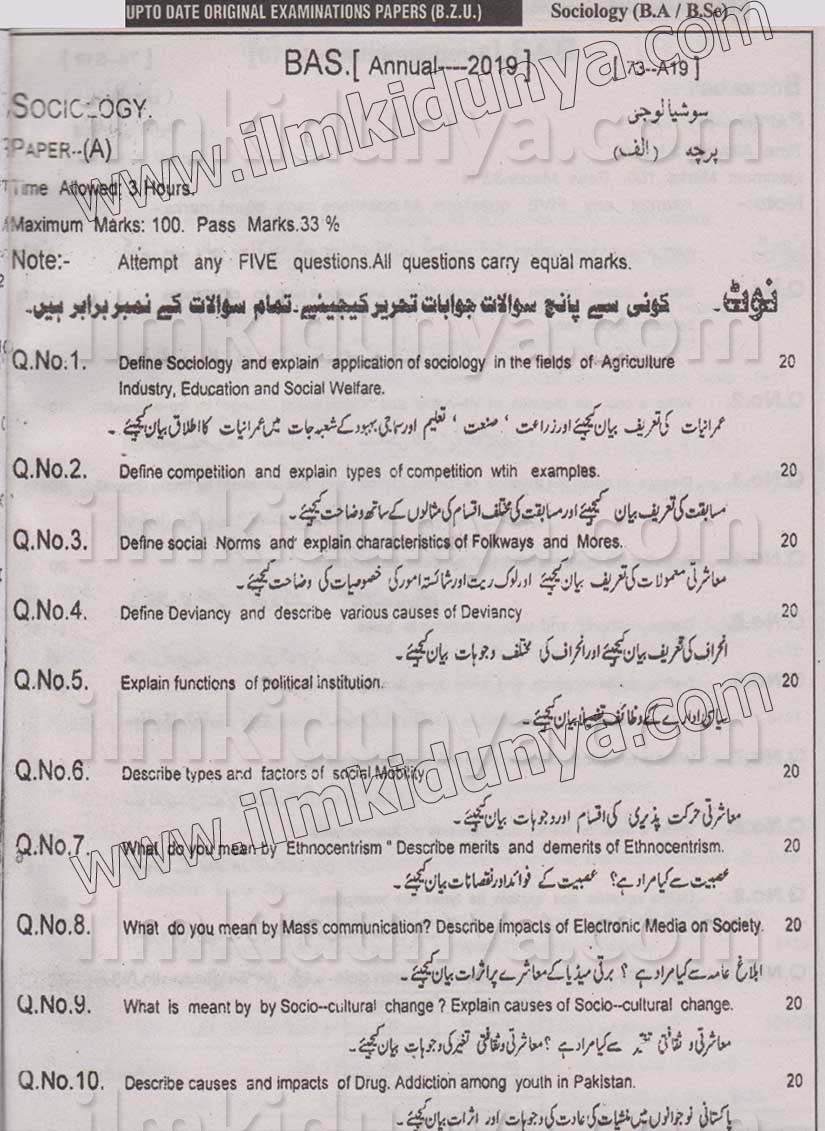 UPTO DATE ORIGINAL EXAMINATIONS PAPERS (B.Z.U.) Sociology (B.A / B.Sc)
BAS.[ Annual----2019 ] [ 73--A19 ]
SOCIOLOGY. سوشیالوجی
PAPER--(A) پرچہ (الف)
Time Allowed: 3 Hours.
Maximum Marks: 100. Pass Marks.33 %
Note:- Attempt any FIVE questions.All questions carry equal marks.
نوٹ۔ کوئی سے پانچ سوالات جوابات تحریر کیجیئے۔ تمام سوالات کے نمبر برابر ہیں۔
Q.No.1. Define Sociology and explain application of sociology in the fields of Agriculture 20
Industry, Education and Social Welfare.
عمرانیات کی تعریف بیان کیجیئے اور زراعت ‘ صنعت ‘ تعلیم اور سماجی بہبود کے شعبہ جات میں عمرانیات کا اطلاق بیان کیجیئے ۔
Q.No.2. Define competition and explain types of competition wtih examples. 20
مسابقت کی تعریف بیان کیجیئے اور مسابقت کی مختلف اقسام کی مثالوں کے ساتھ وضاحت کیجیئے ۔
Q.No.3. Define social Norms and explain characteristics of Folkways and Mores. 20
معاشرتی معمولات کی تعریف بیان کیجیئے اور لوک ریت اور شائستہ امور کی خصوصیات کی وضاحت کیجیئے ۔
Q.No.4. Define Deviancy and describe various causes of Deviancy 20
انحراف کی تعریف بیان کیجیئے اور انحراف کی مختلف وجوہات بیان کیجیئے ۔
Q.No.5. Explain functions of political institution. 20
سیاسی ادارے کے وظائف تفصیلاً بیان کیجیئے ۔
Q.No.6. Describe types and factors of social Mobility. 20
معاشرتی حرکت پذیری کی اقسام اور وجوہات بیان کیجیئے ۔
Q.No.7. What do you mean by Ethnocentrism " Describe merits and demerits of Ethnocentrism. 20
عصبیت سے کیا مراد ہے ؟ عصبیت کے فوائد اور نقصانات بیان کیجیئے ۔
Q.No.8. What do you mean by Mass communication? Describe impacts of Electronic Media on Society. 20
ابلاغ عامہ سے کیا مراد ہے ؟ برقی میڈیا کے معاشرے پر اثرات بیان کیجیئے ۔
Q.No.9. What is meant by by Socio--cultural change ? Explain causes of Socio--cultural change. 20
معاشرتی و ثقافتی تغیر سے کیا مراد ہے ؟ معاشرتی و ثقافتی تغیر کی وجوہات بیان کیجیئے ۔
Q.No.10. Describe causes and impacts of Drug. Addiction among youth in Pakistan. 20
پاکستانی نوجوانوں میں منشیات کی عادت کی وجوہات اور اثرات بیان کیجیئے ۔
www.ilmkidunya.com
www.ilmkidunya.com
ilmkidunya.com
ilmkidunya.com
ilmkidunya.com
ilmkidunya.com
ilmkidunya.com
ilmkidunya.com